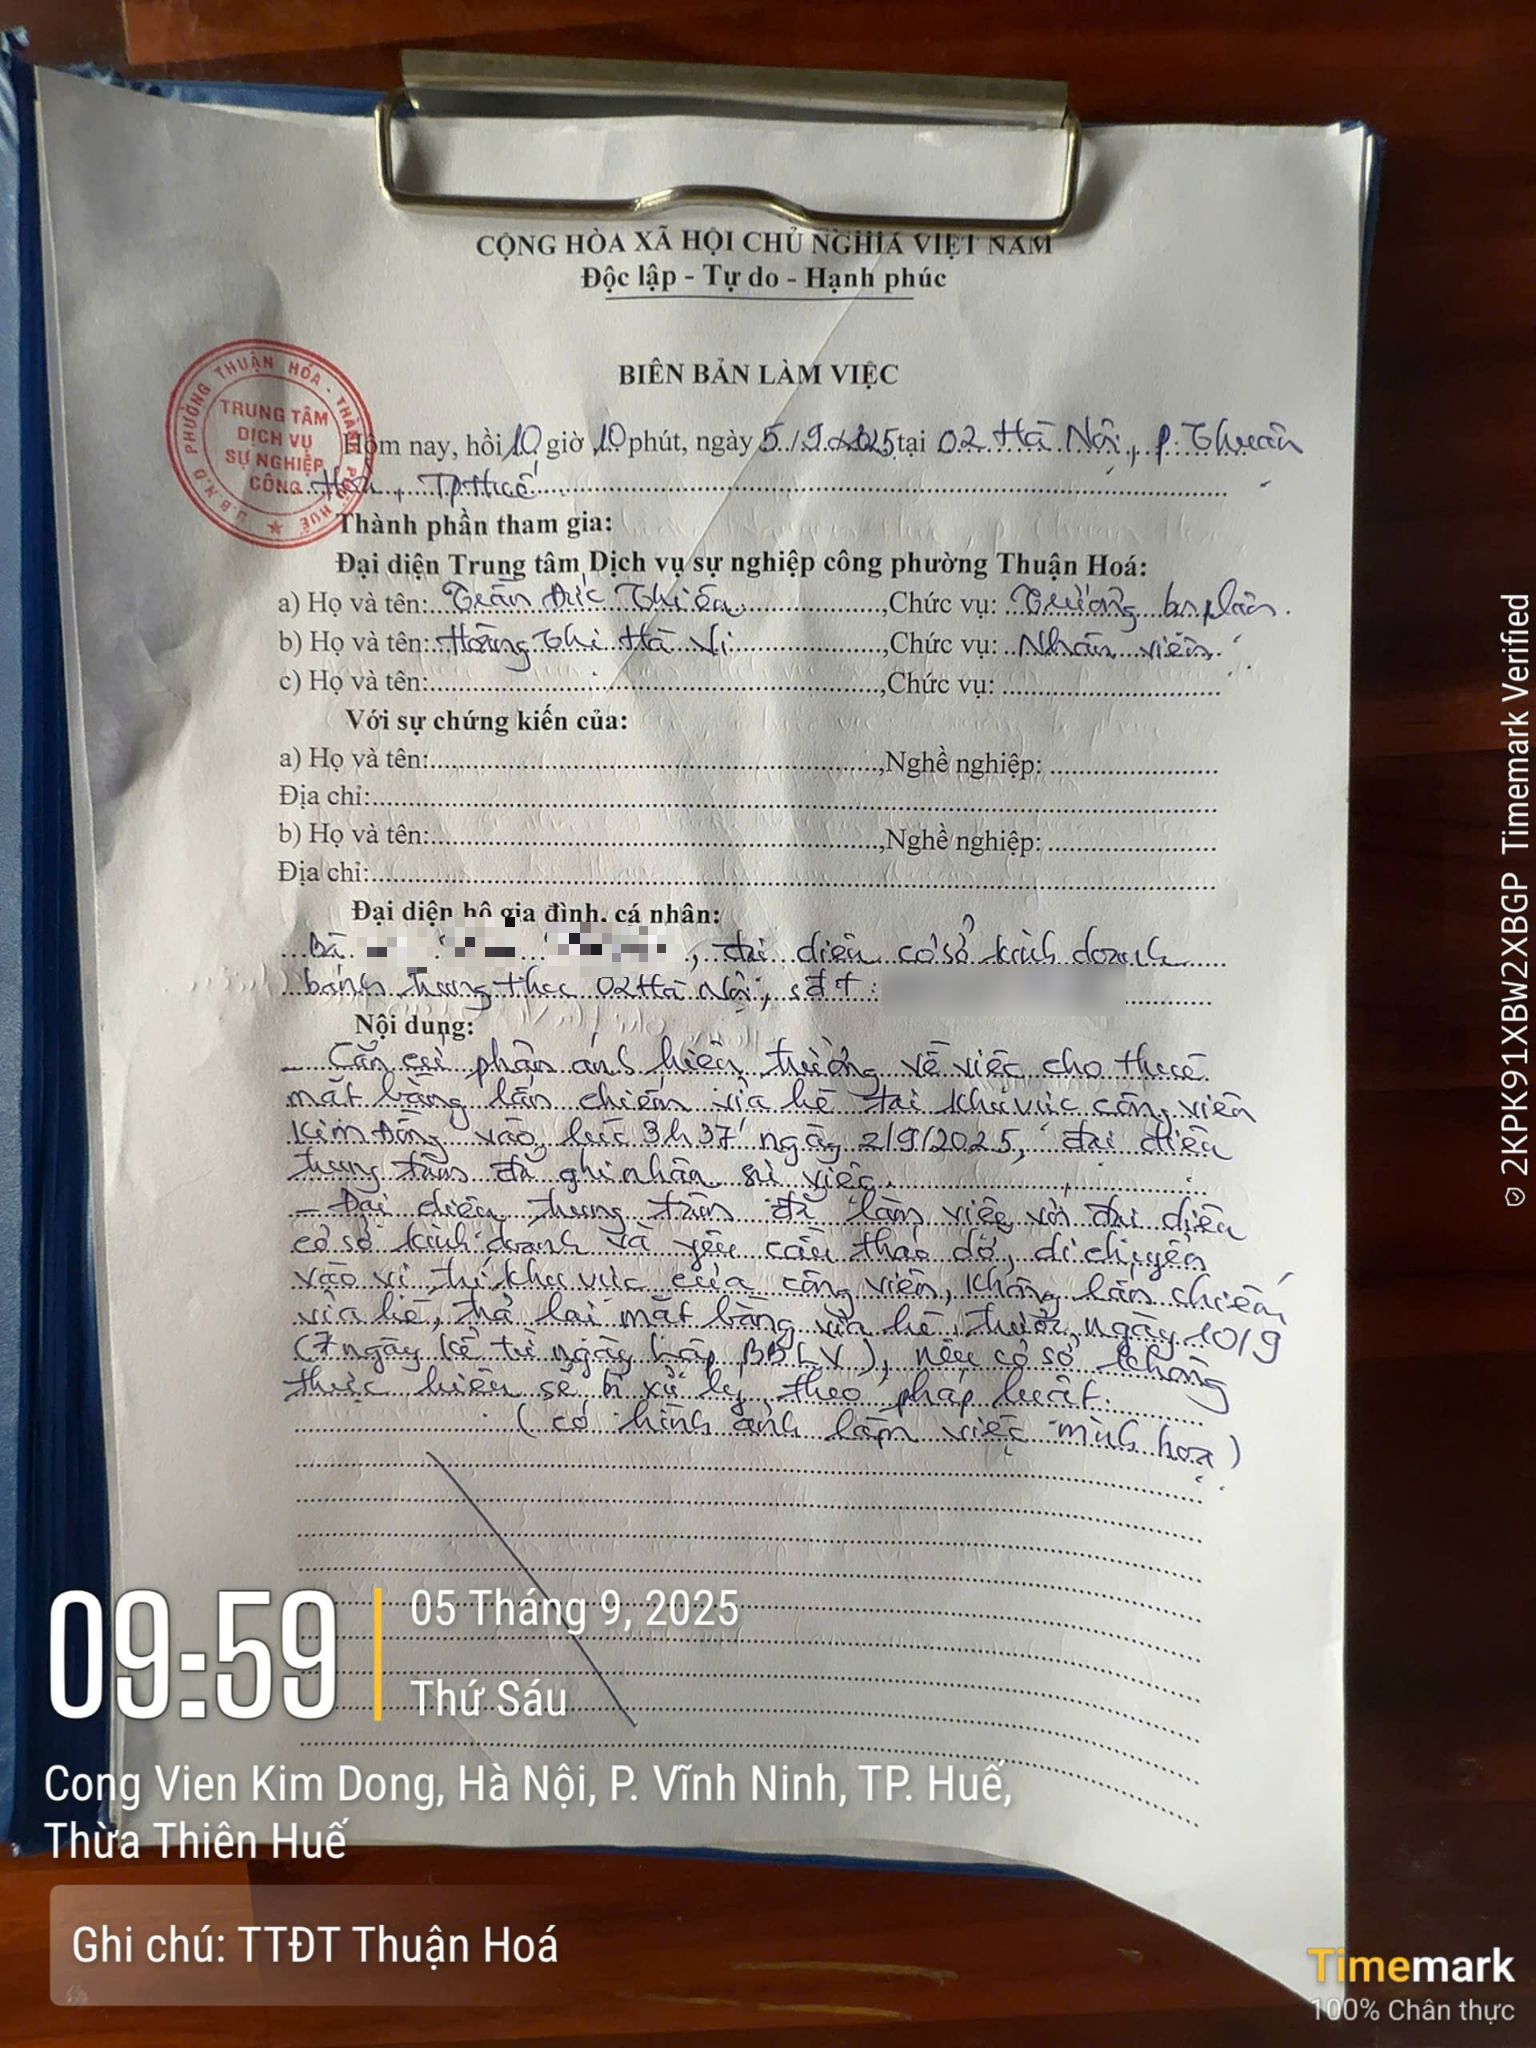 CỘNG HÒA XÃ HỘI CHỦ NGHĨA VIỆT NAM
Độc lập - Tự do - Hạnh phúc
U.B.N.D PHƯỜNG THUẬN HÓA - THÀNH PHỐ HUẾ
TRUNG TÂM
DỊCH VỤ
SỰ NGHIỆP
CÔNG
BIÊN BẢN LÀM VIỆC
Hôm nay, hồi 10 giờ 10 phút, ngày 5/9/2025 tại 02 Hà Nội, P. Thuận
Hoá, TP Huế
Thành phần tham gia:
Đại diện Trung tâm Dịch vụ sự nghiệp công phường Thuận Hoá:
a) Họ và tên: Trần Đức Thiện, Chức vụ: Trưởng bộ phận.
b) Họ và tên: Hoàng Thị Hà Vi, Chức vụ: Nhân viên.
c) Họ và tên:, Chức vụ:
Với sự chứng kiến của:
a) Họ và tên:, Nghề nghiệp:
Địa chỉ:
b) Họ và tên:, Nghề nghiệp:
Địa chỉ:
Đại diện hộ gia đình, cá nhân:
Bà, đại diện cơ sở kinh doanh
bánh trung thu 02 Hà Nội, sđt:
Nội dung:
- Căn cứ phản ánh hiện trường về việc cho thuê
mặt bằng lấn chiếm vỉa hè tại khu vực công viên
Kim Đồng vào lúc 3h37' ngày 2/9/2025, đại diện
trung tâm đã ghi nhận sự việc.
- Đại diện trung tâm đã làm việc với đại diện
cơ sở kinh doanh và yêu cầu tháo dỡ, di chuyển
vào vị trí khu vực của công viên, không lấn chiếm
vỉa hè, trả lại mặt bằng vỉa hè trước ngày 10/9
(7 ngày kể từ ngày lập BBLV), nếu cơ sở không
thực hiện sẽ bị xử lý theo pháp luật.
(có hình ảnh làm việc minh hoạ)
09:59
05 Tháng 9, 2025
Thứ Sáu
Cong Vien Kim Dong, Hà Nội, P. Vĩnh Ninh, TP. Huế,
Thừa Thiên Huế
Ghi chú: TTĐT Thuận Hoá
Timemark
100% Chân thực
2KPK91XBW2XBGP Timemark Verified